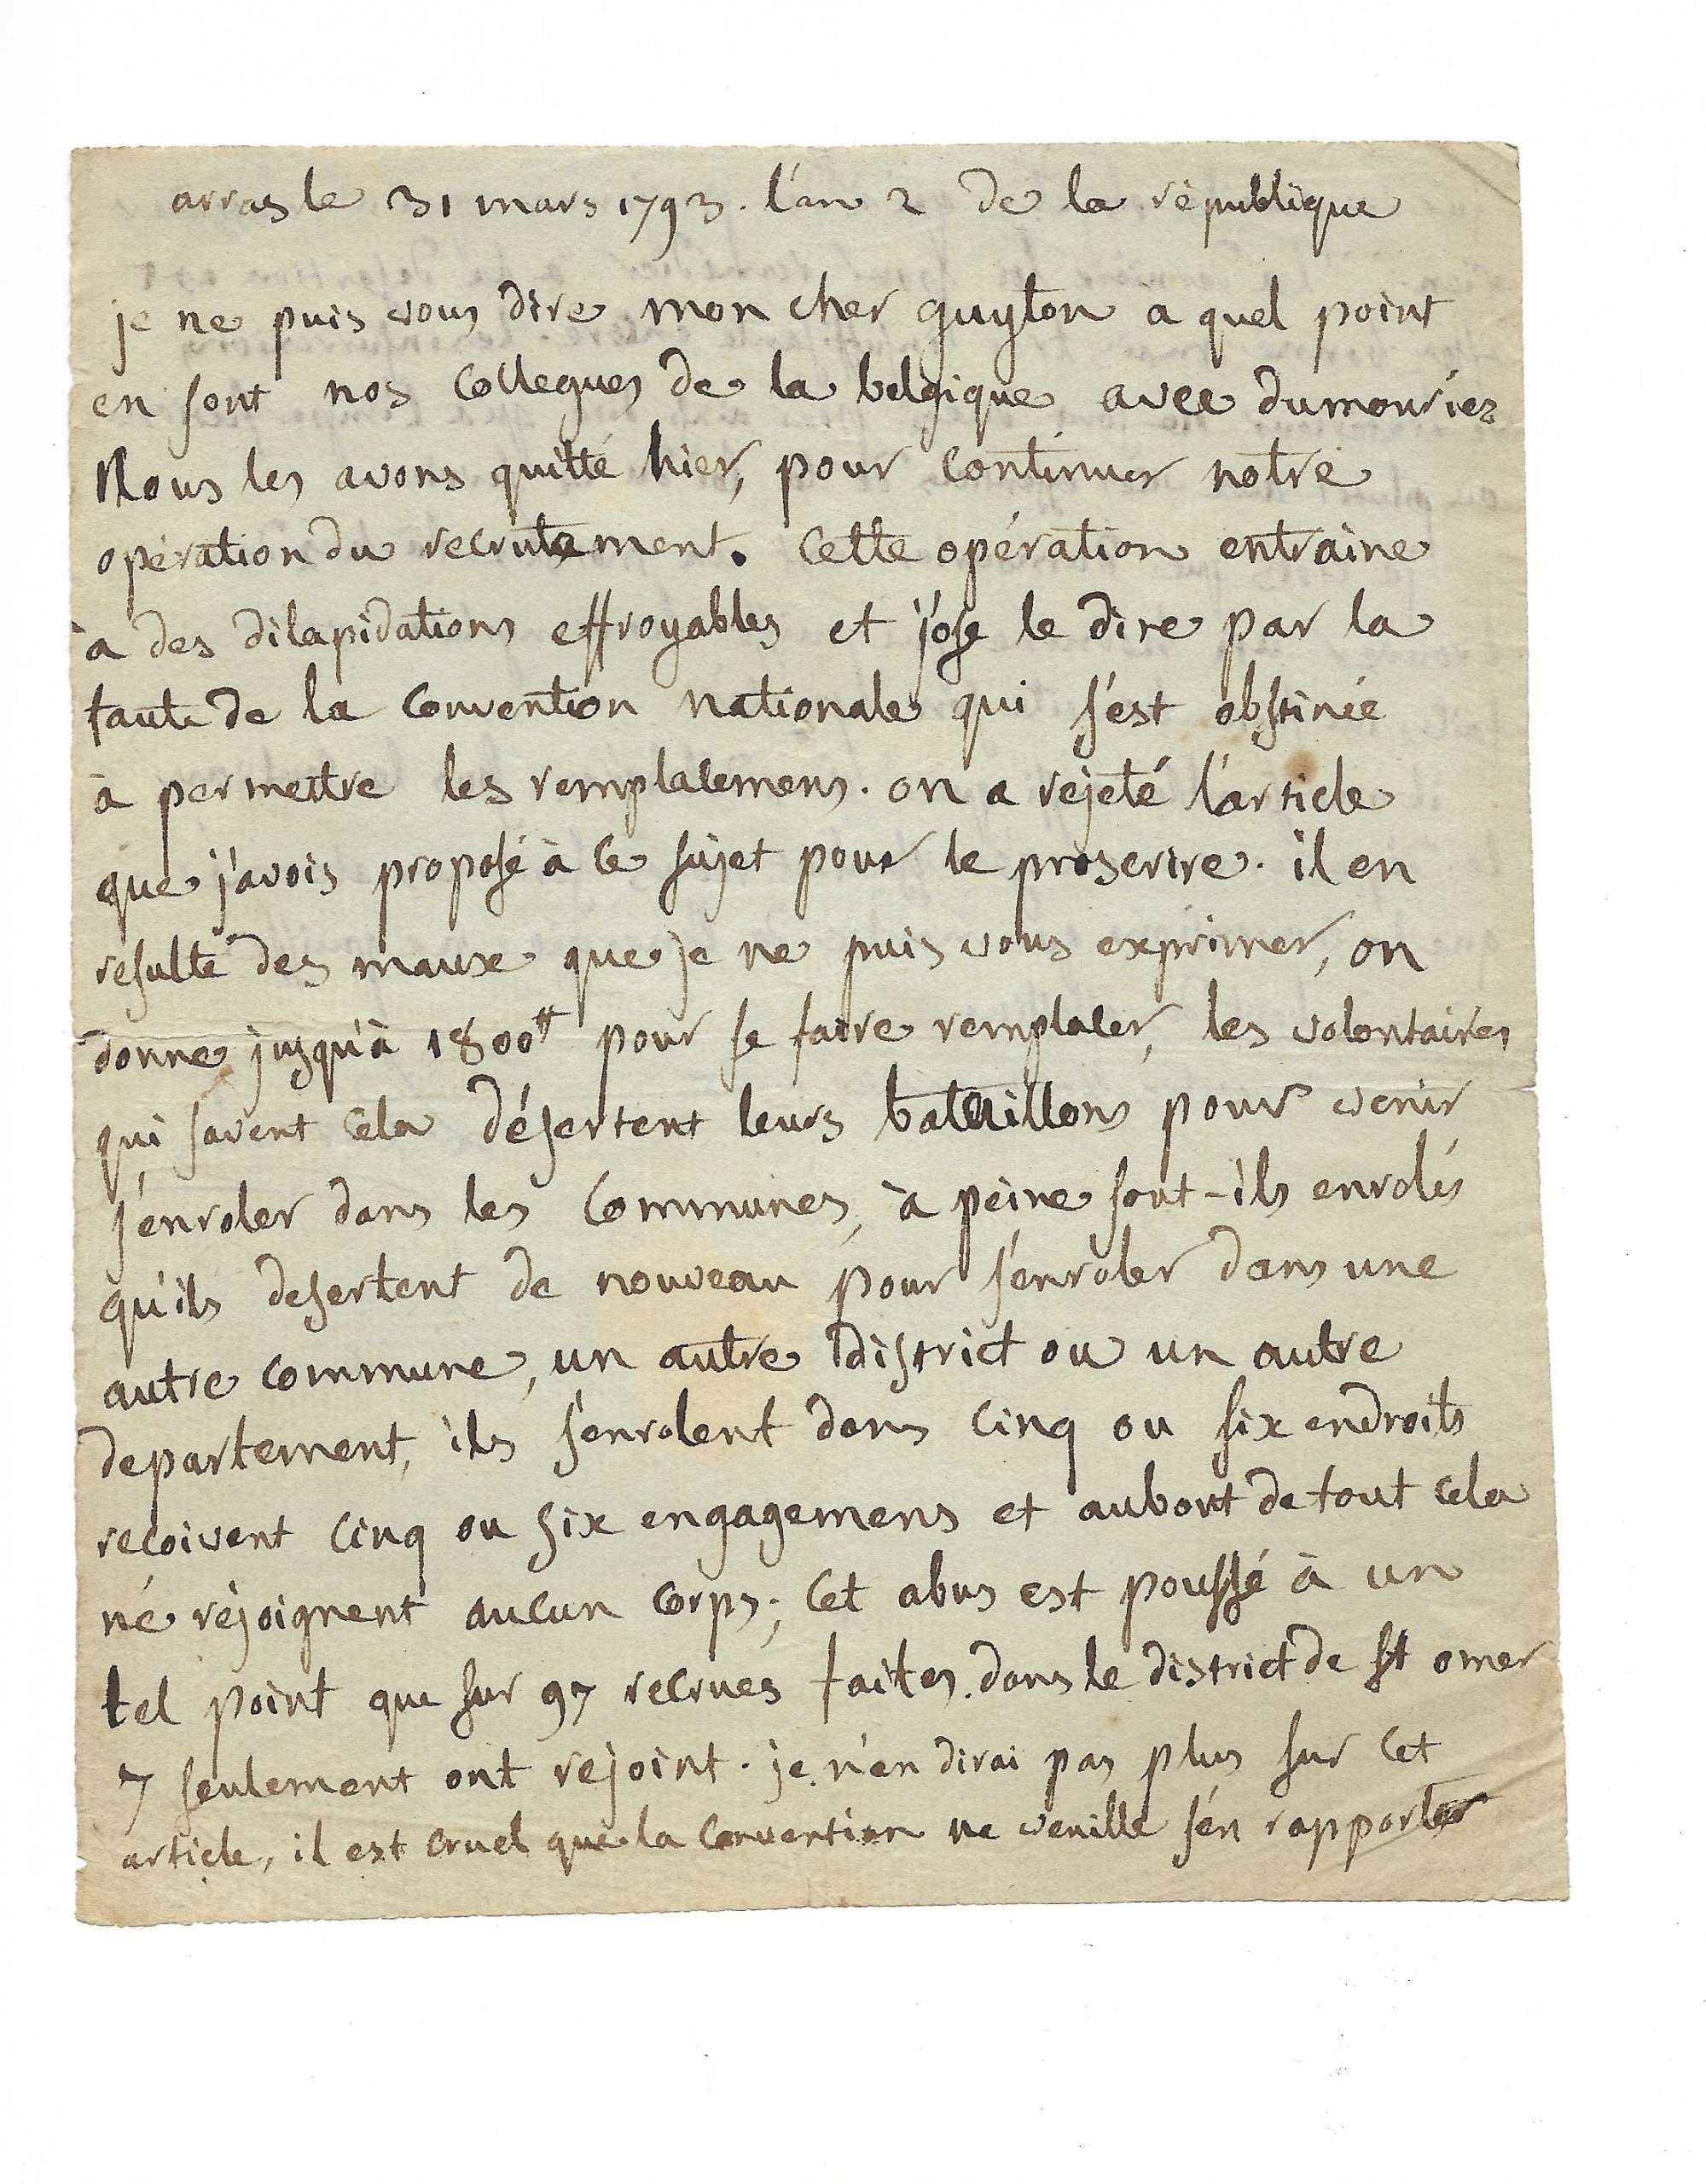 arras le 31 mars 1793. l'an 2 de la république
je ne puis vous dire mon cher guyton a quel point
en sont nos collegues de la belgique avec dumouriez
Nous les avons quitté hier, pour continuer notre
opération du recrutement. cette opération entraine
à des dilapidations effroyables et j'ose le dire par la
faute de la convention nationale qui s'est obstinée
à permettre les remplacemens. on a rejeté l'article
que j'avois proposé à ce sujet pour le proscrire. il en
resulte des maux que je ne puis vous exprimer, on
donne jusqu'à 1800# pour se faire remplacer, les volontaires
qui savent cela désertent leurs bataillons pour venir
s'enroler dans les communes, à peine sont-ils enrolés
qu'ils desertent de nouveau pour s'enroler dans une
autre commune, un autre district ou un autre
departement, ils s'enrolent dans cinq ou six endroits
recoivent cinq ou six engagemens et au bout de tout cela
ne rejoignent aucun corps; cet abus est poussé à un
tel point que sur 97 recrues faites dans le district de st omer
7 seulement ont rejoint. je n'en dirai pas plus sur cet
article, il est cruel que la convention ne veuille s'en rapporter